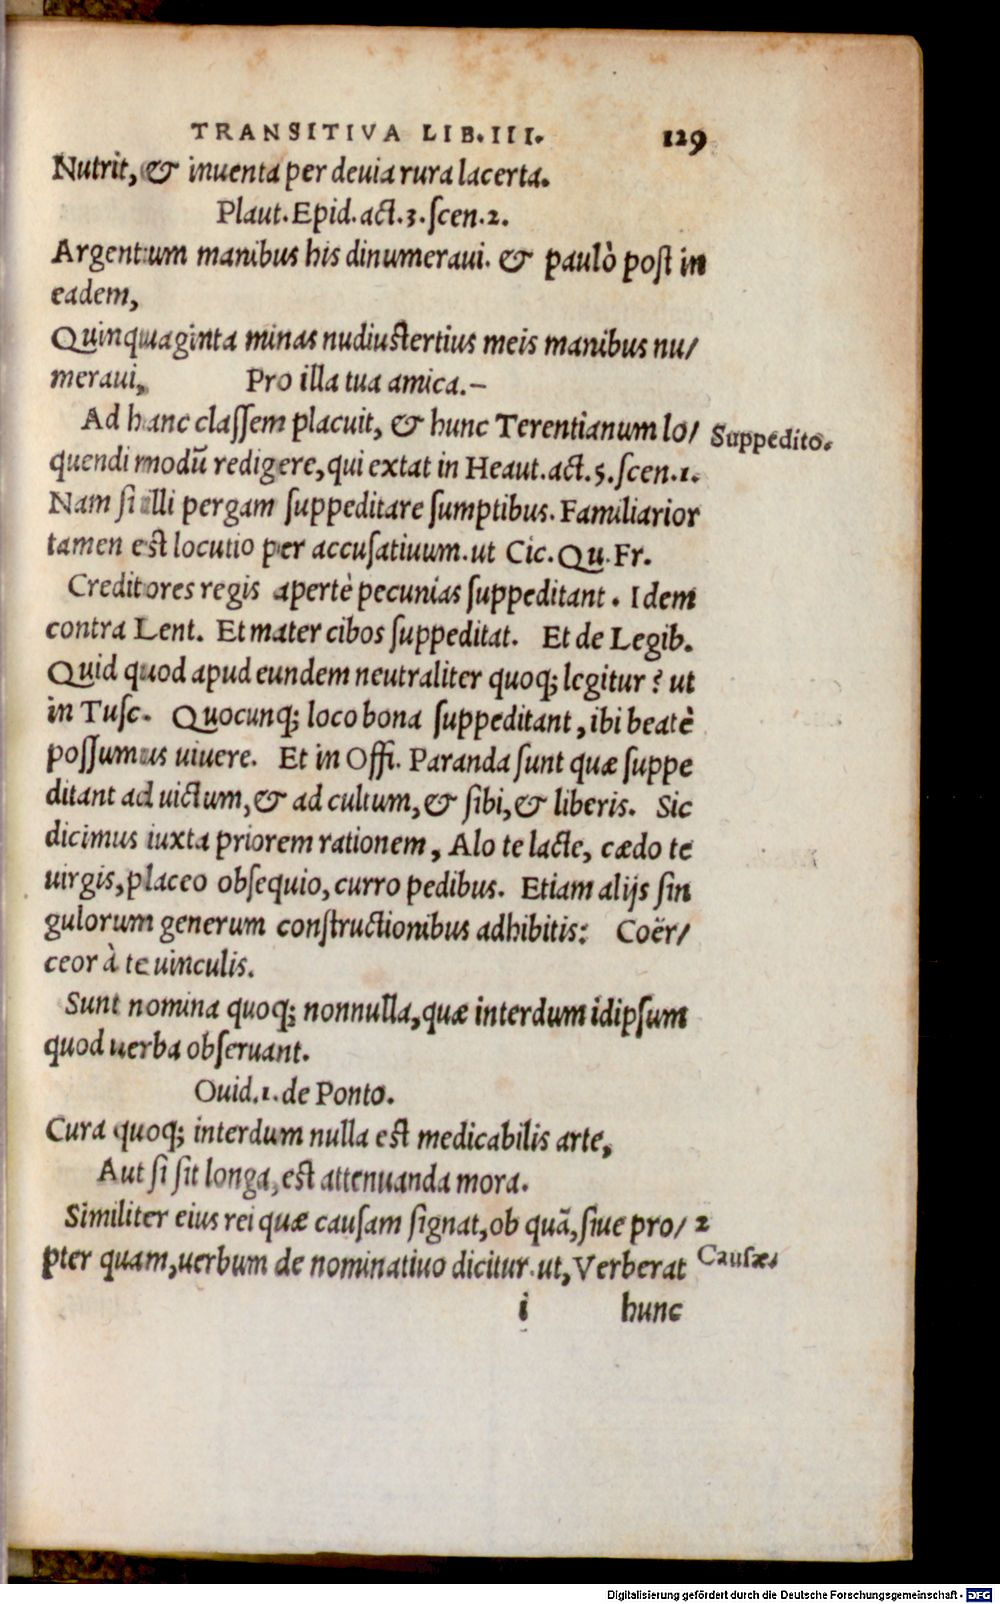 TRANSITIVA LIB.III. 129
Nutrit, & inuenta per deuia rura lacerta.
Plaut. Epid. act. 3. ſcen. 2.
Argentum manibus his dinumeraui. & paulò poſt in
eadem,
Quinquaginta minas nudiustertius meis manibus nu/
meraui, Pro illa tua amica.—
Ad hanc claſſem placuit, & hunc Terentianum lo/ Suppedito.
quendi modũ redigere, qui extat in Heaut. act. 5. ſcen. 1.
Nam ſi illi pergam ſuppeditare ſumptibus. Familiarior
tamen est locutio per accuſatiuum. ut Cic. Qu. Fr.
Creditores regis apertè pecunias ſuppeditant. Idem
contra Lent. Et mater cibos ſuppeditat. Et de Legib.
Quid quod apud eundem neutraliter quoq; legitur? ut
in Tuſc. Quocunq; loco bona ſuppeditant, ibi beatè
poſſumus uiuere. Et in Offi. Paranda ſunt quæ ſuppe
ditant ad uictum, & ad cultum, & ſibi, & liberis. Sic
dicimus iuxta priorem rationem, Alo te lacte, cædo te
uirgis, placeo obſequio, curro pedibus. Etiam alijs ſin
gulorum generum conſtructionibus adhibitis: Coër/
ceor à te uinculis.
Sunt nomina quoq; nonnulla, quæ interdum idipſum
quod uerba obſeruant.
Ouid. 1. de Ponto.
Cura quoq; interdum nulla est medicabilis arte,
Aut ſi ſit longa, est attenuanda mora.
Similiter eius rei quæ cauſam ſignat, ob quã, ſiue pro/ 2
pter quam, uerbum de nominatiuo dicitur. ut, Verberat Cauſæ.
i hunc
Digitalisierung gefördert durch die Deutsche Forschungsgemeinschaft - DFG